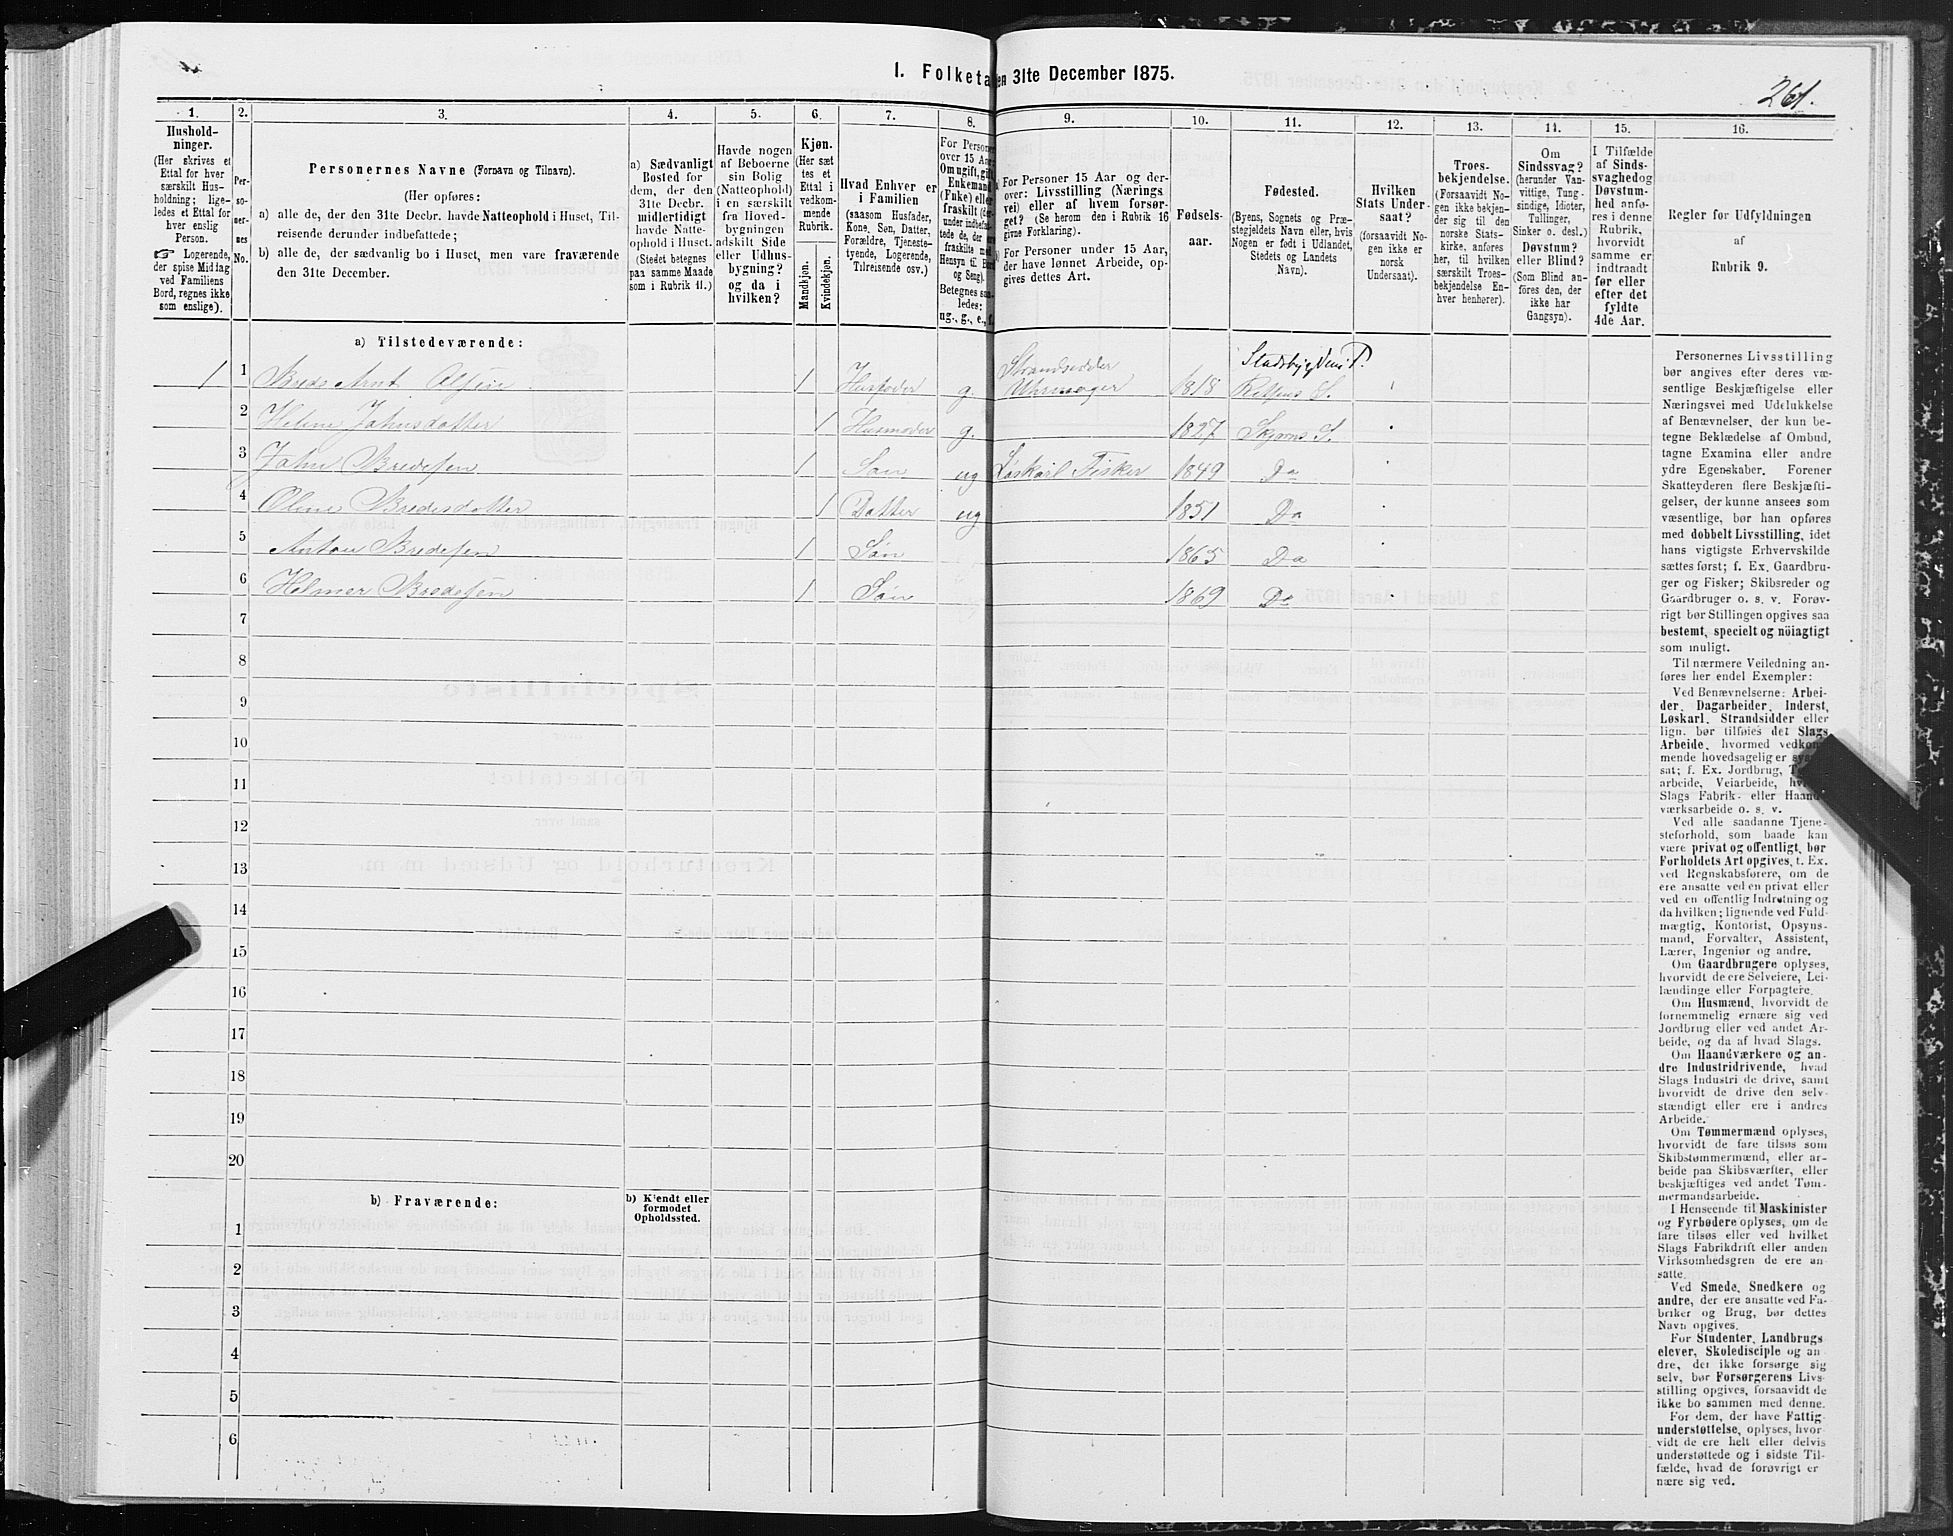 I. Folketa en 31te December 1875.
261.
1.
Hushold-
ninger.
(Her skrives et
Ettal for hver
særskilt Hus-
holdning; lige-
ledes et Ettal for
hver enslig
Person.
☞ Logerende,
der spise Midlag
ved Familiens
Bord, regnes ikke
som enslige).
2.
Per-
so-
ner-
nes
No.
3.
Personernes Navne (Fornavn og Tilnavn).
(Her opføres:
a) alle de, der den 31te Decbr. havde Natteophold i Huset, Til-
reisende derunder indbefattede;
b) alle de, der sædvanlig bo i Huset, men vare fraværende
den 31te December.
4.
a) Sædvanligt
Bosted for
dem, der den
31te Decbr.
midlertidigt
havde Natte-
ophold i Huset.
(Stedet betegnes
paa samme Maade
som i Rubrik 11.)
5.
Havde nogen
af Beboerne
sin Bolig
(Natteophold)
i en særskilt
fra Hoved-
bygningen
adskilt Side
eller Udhus-
bygning?
og da i
hvilken?
6.
Kjøn.
(Her sæt
tes et
Ettal i
vedkom-
mende
Rubrik.
Mandkjøn.
Kvindekjøn.
7.
Hvad Enhver er
i Familien
(saasom Husfader,
Kone, Søn, Datter,
Forældre, Tjeneste-
tyende, Logerende,
Tilreisende osv.)
8.
For Persone
over 15 Aar
Om ugift, gift,
Enkemand
(Enke) eller
fraskilt
under indbefat-
tede de, der
fraskilte med
Hensyn til Bord
og Seng).
Betegnes saa-
ledes:
ug., g., e., f.
9.
For Personer 15 Aar og der-
over: Livsstilling (Nærings
vei) eller af hvem forsør-
get? (Se herom den i Rubrik 16
givne Forklaring).
For Personer under 15 Aar,
der have lønnet Arbeide, op-
gives dettes Art.
10.
Fødsels-
aar.
11.
Fødested.
(Byens, Sognets og Præ-
stegjeldets Navn eller, hvis
Nogen er født i Udlandet,
Stedets og Landets
Navn).
12.
Hvilken
Stats Under-
saat?
(forsaavidt No-
gen ikke er
norsk
Undersaat).
13.
Troes-
bekjendelse.
(Forsaavidt No-
gen ikke bekjen-
der sig til den
norske Stats-
kirke, anføres
her, til hvilken
særskilt Troes-
bekjendelse En-
hver henhører).
14.
Om
Sindssvag?
(herunder Van-
vittige, Tung-
sindige, Idioter,
Tullinger,
Sinker o. desl.)
Døvstum?
eller Blind?
(Som Blind an-
föres den, der
ikke har
Gangsyn).
15.
I Tilfælde
af Sinds-
svaghed og
Døvstum-
hed anfø-
res i denne
Rubrik,
hvorvidt
samme er
indtraadt
før eller
efter det
fyldte
4de Aar.
16.
Regler for Udfyldningen
af
Rubrik 9.
a) Tilstedeværende:
1 1 Arnt 1 g. Strandsidder Uhrmager 1818 P.
2 Helene Jahnsdatter 1 Husmoder g. 1827
3 Jahn Bredesen 1 Søn ug Løskarl Fisker 1849 Do
4 Oline Bredesdatter 1 Datter ug 1851 Do
5 Anton Bredesen 1 Søn 1865 Do
6 Helmer Bredesen 1 Søn 1869 Do
7
8
9
10
11
12
13
14
15
16
17
18
19
20
b) Fraværende:
b) Kjendt eller
formodet
Opholdssted.
1
2
3
4
5
6
Personernes Livsstilling
bør angives efter deres væ-
sentlige Beskjæftigelse eller
Næringsvei med Udelukkelse
af Benævnelser, der kun be-
tegne Beklædelse af Ombud,
tagne Examina eller andre
ydre Egenskaber. Forener
Skatteyderen flere Beskjæfti-
gelser, der kunne ansees som
væsentlige, bør han opføres
med dobbelt Livsstilling, idet
hans vigtigste Erhvervskilde
sættes først; f. Ex. Gaardbru-
ger og Fisker; Skibsreder og
Gaardbruger o. s. v. Forøv-
rigt bør Stillingen opgives saa
bestemt, specielt og nöiagtigt
som muligt.
Til nærmere Veiledning an-
føres her endel Exempler:
Ved Benævnelserne: Arbei-
der, Dagarbeider, Inderst,
Løskarl, Strandsidder eller
lign. bør tilføies det Slags
Arbeide, hvormed vedkom-
mende hovedsagelig er
sat; f. Ex. Jordbrug,
arbeide, Veiarbeide,
Slags Fabrik- eller Haand-
værksarbeide o. s. v.
Ved alle saadanne Tjene-
steforhold, som baade kan
være privat og offentligt, bør
Forholdets Art opgives, t. Ex.
ved Regnskabsførere, om de
ere ansatte ved en privat eller
ved en offentlig Indretning og
da hvilken; lignende ved Fuld-
mægtig, Kontorist, Opsyns-
mand, Forvalter, Assistent,
Lærer, Ingeniør og andre.
Om Gaardbrugere oplyses,
hvorvidt de ere Selveiere, Lei-
lændinge eller Forpagtere.
Om Husmænd, hvorvidt de
fornemmelig ernære sig ved
Jordbrug eller ved andet Ar-
beide, og da af hvad Slags.
Om Haandværkere og an-
dre Industridrivende, hvad
Slags Industri de drive, samt
hvorvidt de drive den selv-
stændigt eller ere i andres
Arbeide.
Om Tømmermænd oplyses,
hvorvidt de fare tilsøs som
Skibstømmermænd, eller ar-
beide paa Skibsværfter, eller
beskjæftiges ved andet Tøm-
mermandsarbeide.
I Henseende til Maskinister
og Fyrbødere oplyses, om de
fare tilsøs eller ved hvilket
Slags Fabrikdrift eller anden
Virksomhedsgren de ere an-
satte.
Ved Smede, Snedkere og
andre, der ere ansatte ved Fa-
briker og Brug, bør dettes
Navn opgives.
For Studenter, Landbrugs
elever, Skoledisciple og an-
dre, der ikke forsørge sig
selv, bør Forsørgerens Livs-
stilling opgives, forsaavidt de
ikke bo sammen med denne.
For dem, der have Fattig-
understøttelse, oplyses, hvor-
vidt de ere helt eller delvis
understøttede og i sidste Til-
fælde, hvad de forøvrigt er
nære sig ved.